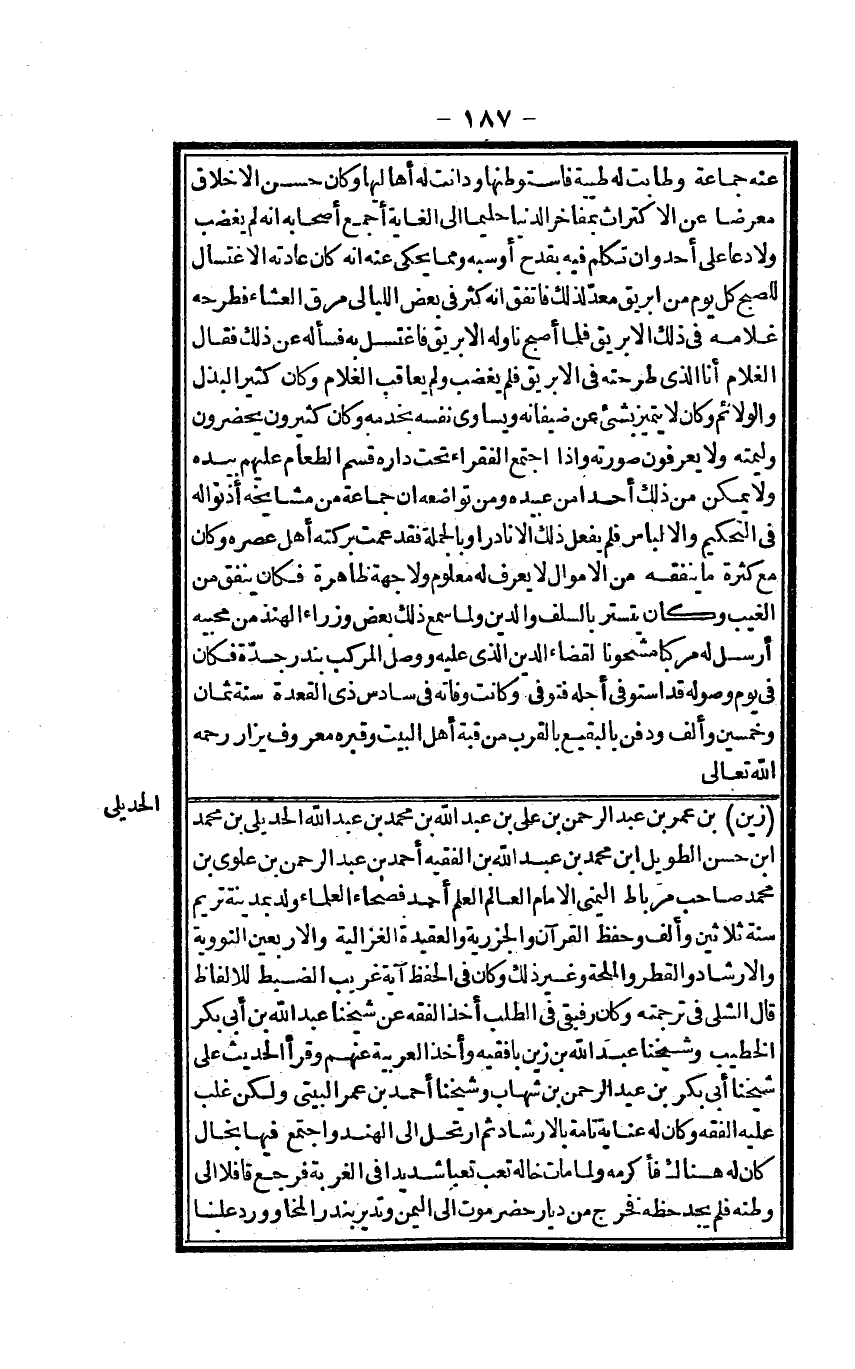 - ١٨٧ -
عنه جماعة وطابت له طيبة فاستوطنها ودانت له أهاليها وكان حسن الاخلاق
معرضا عن الاكتراث بمفاخر الدنيا حليما الى الغاية أجمع أصحابه انه لم يغضب
ولا دعا على أحد وان تكلم فيه بقدح أوسبه ومما يحكى عنه انه كان عادته الاغتسال
للصبح كل يوم من ابريق معدّ لذلك فاتفق انه كثر فى بعض الليالى مرق العشاء فطرحه
غلامه فى ذلك الابريق فلما أصبح ناوله الابريق فاغتسل به فسأله عن ذلك فقال
الغلام أنا الذى طرحته فى الابريق فلم يغضب ولم يعاقب الغلام وكان كثير البذل
والولائم وكان لا يتميز بشئ عن ضيفانه ويساوى نفسه بخدمه وكان كثيرون يحضرون
وليمته ولا يعرفون صورته واذا اجتمع الفقراء تحت داره قسم الطعام عليهم بيده
ولا يمكن من ذلك أحدا من عبيده ومن تواضعه ان جماعة من مشايخه أذنواله
فى التحكيم والالباس فلم يفعل ذلك الا نادرا وبالجملة فقد عمت بركته أهل عصره وكان
مع كثرة ما ينفقه من الاموال لا يعرف له معلوم ولا جهة ظاهرة فكان ينفق من
الغيب وكان يتستر بالسلف والدين ولما سمع ذلك بعض وزراء الهند من محبيه
أرسل له مركبا مشحونا لقضاء الدين الذى عليه ووصل المركب بندر جدّة فكان
فى يوم وصوله قد استوفى أجله فتوفى وكانت وفاته فى سادس ذى القعدة سنة ثمان
وخمسين وألف ودفن بالبقيع بالقرب من قبة أهل البيت وقبره معروف يزار رحمه
الله تعالى
الحديلى
(زين) بن عمر بن عبد الرحمن بن على بن عبد الله بن محمد بن عبد الله الحديلى بن محمد
ابن حسن الطويل ابن محمد بن عبد الله بن الفقيه أحمد بن عبد الرحمن بن علوى بن
محمد صاحب مرباط اليمنى الامام العالم العلم أحد فصحاء العلماء ولد بمدينة تريم
سنة ثلاثين وألف وحفظ القرآن والجزرية والعقيدة الغزالية والاربعين النووية
والارشاد والقطر والملحة وغير ذلك وكان فى الحفظ آية غريب الضبط للالفاظ
قال الشلى فى ترجمته وكان رفيقى فى الطلب أخذ الفقه عن شيخنا عبد الله بن أبى بكر
الخطيب وشيخنا عبد الله بن زين بافقيه وأخذ العربية عنهم وقرأ الحديث على
شيخنا أبى بكر بن عبد الرحمن بن شهاب وشيخنا أحمد بن عمر البيتى ولكن غلب
عليه الفقه وكان له عناية تامة بالارشاد ثم ارتحل الى الهند واجتمع فيها بخال
كان له هناك فأكرمه ولما مات خاله تعب تعبا شديدا فى الغربة فرجع قافلا الى
وطنه فلم يجد حظه فخرج من ديار حضرموت الى اليمن وتدير بندر المخا وورد علينا